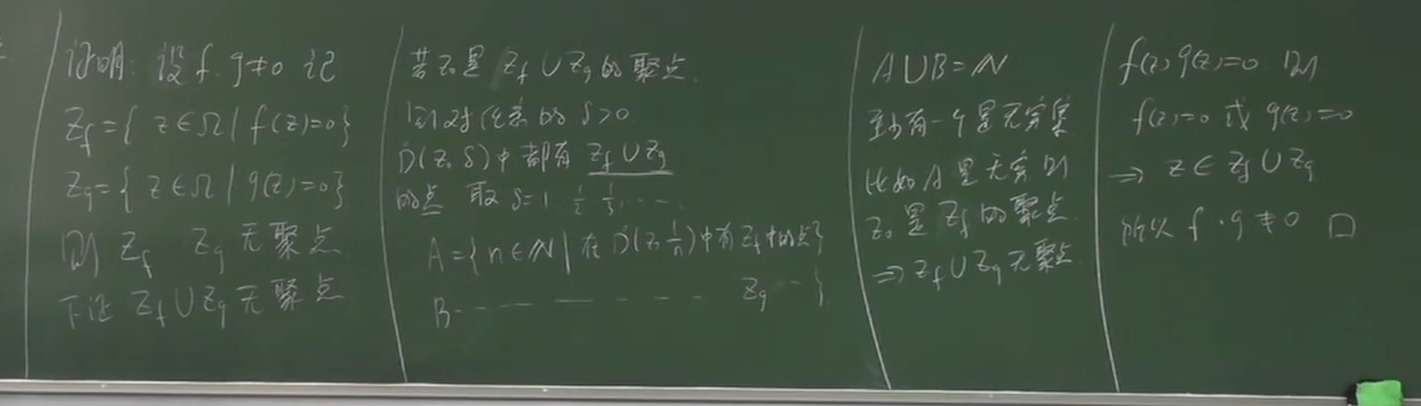 证明: 设 f. g≢0 记
Z_f={ z∈Ω | f(z)=0}
Z_g={ z∈Ω | g(z)=0}
则 Z_f Z_g 无聚点
下证 Z_f∪Z_g 无聚点
若 z₀ 是 Z_f∪Z_g 的聚点.
则对任意的 δ>0
Ḋ(z₀ δ)中都有 Z_f∪Z_g
的点 取 δ=1. 1/2 1/3. ...
A={n∈ℕ | 在 Ḋ(z₀ 1/n)中有 Z_f 中的点}
B ... Z_g ... }
A∪B=ℕ
至少有一个是无穷集
比如 A 是无穷 则
z₀ 是 Z_f 的聚点
⇒ Z_f∪Z_g 无聚点
f(z)g(z)=0 则
f(z)=0 或 g(z)=0
⇒ z∈Z_f∪Z_g
所以 f·g≢0 □